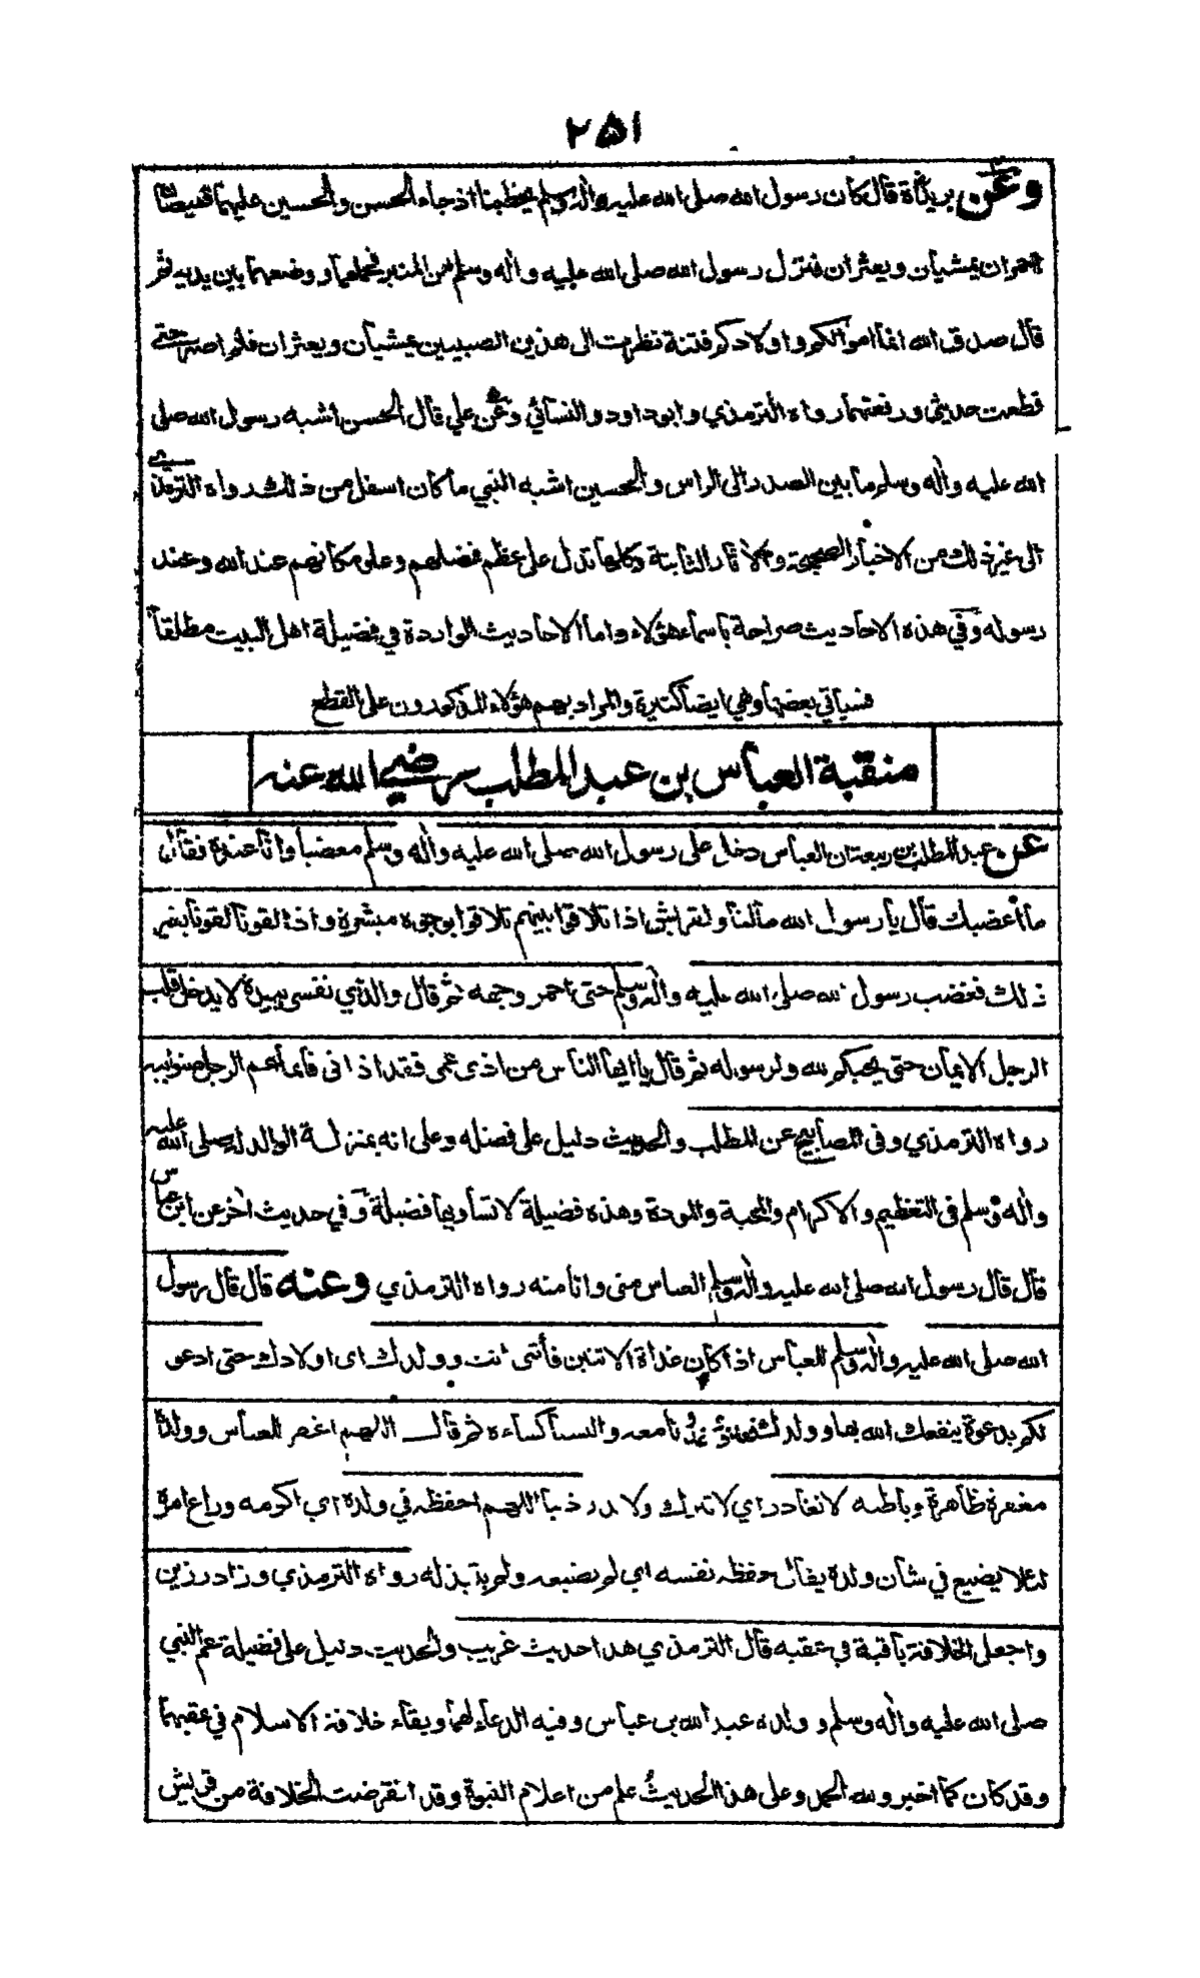 ٢٥١
وعن بريدة قال كان رسول الله صلى الله عليه واله وسلم يخطبنا اذ جاء الحسن والحسين عليهما قميصان
احمران يمشيان ويعثران فنزل رسول الله صلى الله عليه واله وسلم من المنبر فحملهما ووضعهما بين يديه ثم
قال صدق الله انما اموالكم واولادكم فتنة نظرت الى هذين الصبيين يمشيان ويعثران فلم اصبر حتى
قطعت حديثي ورفعتهما رواه الترمذي وابو داود والنسائي وعن علي قال الحسن اشبه رسول الله صلى
الله عليه واله وسلم ما بين الصدر الى الراس والحسين اشبه النبي ما كان اسفل من ذلك رواه الترمذي
الى غير ذلك من الاخبار الصحيحة والاثار الثابتة وكلها تدل على عظم فضلهم وعلو مكانهم عند الله وعند
رسوله وفي هذه الاحاديث صراحة باسماء هؤلاء واما الاحاديث الواردة في فضيلة اهل البيت مطلقا
فسياتي بعضها وهي ايضا كثيرة والمراد بهم هؤلاء المذكورون على القطع
منقبة العباس بن عبد المطلب رضي الله عنه
عن عبد المطلب بن ربيعة ان العباس دخل على رسول الله صلى الله عليه واله وسلم مغضبا وانا عنده فقال
ما أغضبك قال يا رسول الله مالنا ولقريش اذا تلاقوا بينهم تلاقوا بوجوه مبشرة واذا لقونا لقونا بغير
ذلك فغضب رسول الله صلى الله عليه واله وسلم حتى احمر وجهه ثم قال والذي نفسي بيده لا يدخل قلب
الرجل الايمان حتى يحبكم لله ولرسوله ثم قال يا ايها الناس من اذى عمي فقد اذاني فانما عم الرجل صنو ابيه
رواه الترمذي وفي المصابيح عن المطلب والحديث دليل على فضله وعلى انه بمنزلة الوالد له صلى الله عليه
واله وسلم في التعظيم والاكرام والمحبة والمودة وهذه فضيلة لا تساويها فضيلة وفي حديث اخر عن ابن عباس
قال قال رسول الله صلى الله عليه واله وسلم العباس مني وانا منه رواه الترمذي وعنه قال قال رسول
الله صلى الله عليه واله وسلم للعباس اذا كان غداة الاثنين فأتني انت وولدك اى اولادك حتى ادعو
لكم بدعوة ينفعك الله بها وولدك فغدا وغدونا معه والبسنا كساءه ثم قال اللهم اغفر للعباس وولده
مغفرة ظاهرة وباطنة لا تغادر اي لا تترك ولا تذر ذنبا اللهم احفظه في ولده اى اكرمه وراع امره
لئلا يضيع في شأن ولده يقال حفظ نفسه اي لم يضيعه ولم يبتذله رواه الترمذي وزاد رزين
واجعل الخلافة باقية في عقبه قال الترمذي هذا حديث غريب والحديث دليل على فضيلة عم النبي
صلى الله عليه واله وسلم وولده عبد الله بن عباس وفيه الدعاء لهما وبقاء خلافة الاسلام في عقبهما
وقد كان كما اخبر ولله الحمد وعلى هذا الحديث علم من اعلام النبوة وقد انقرضت الخلافة من قريش